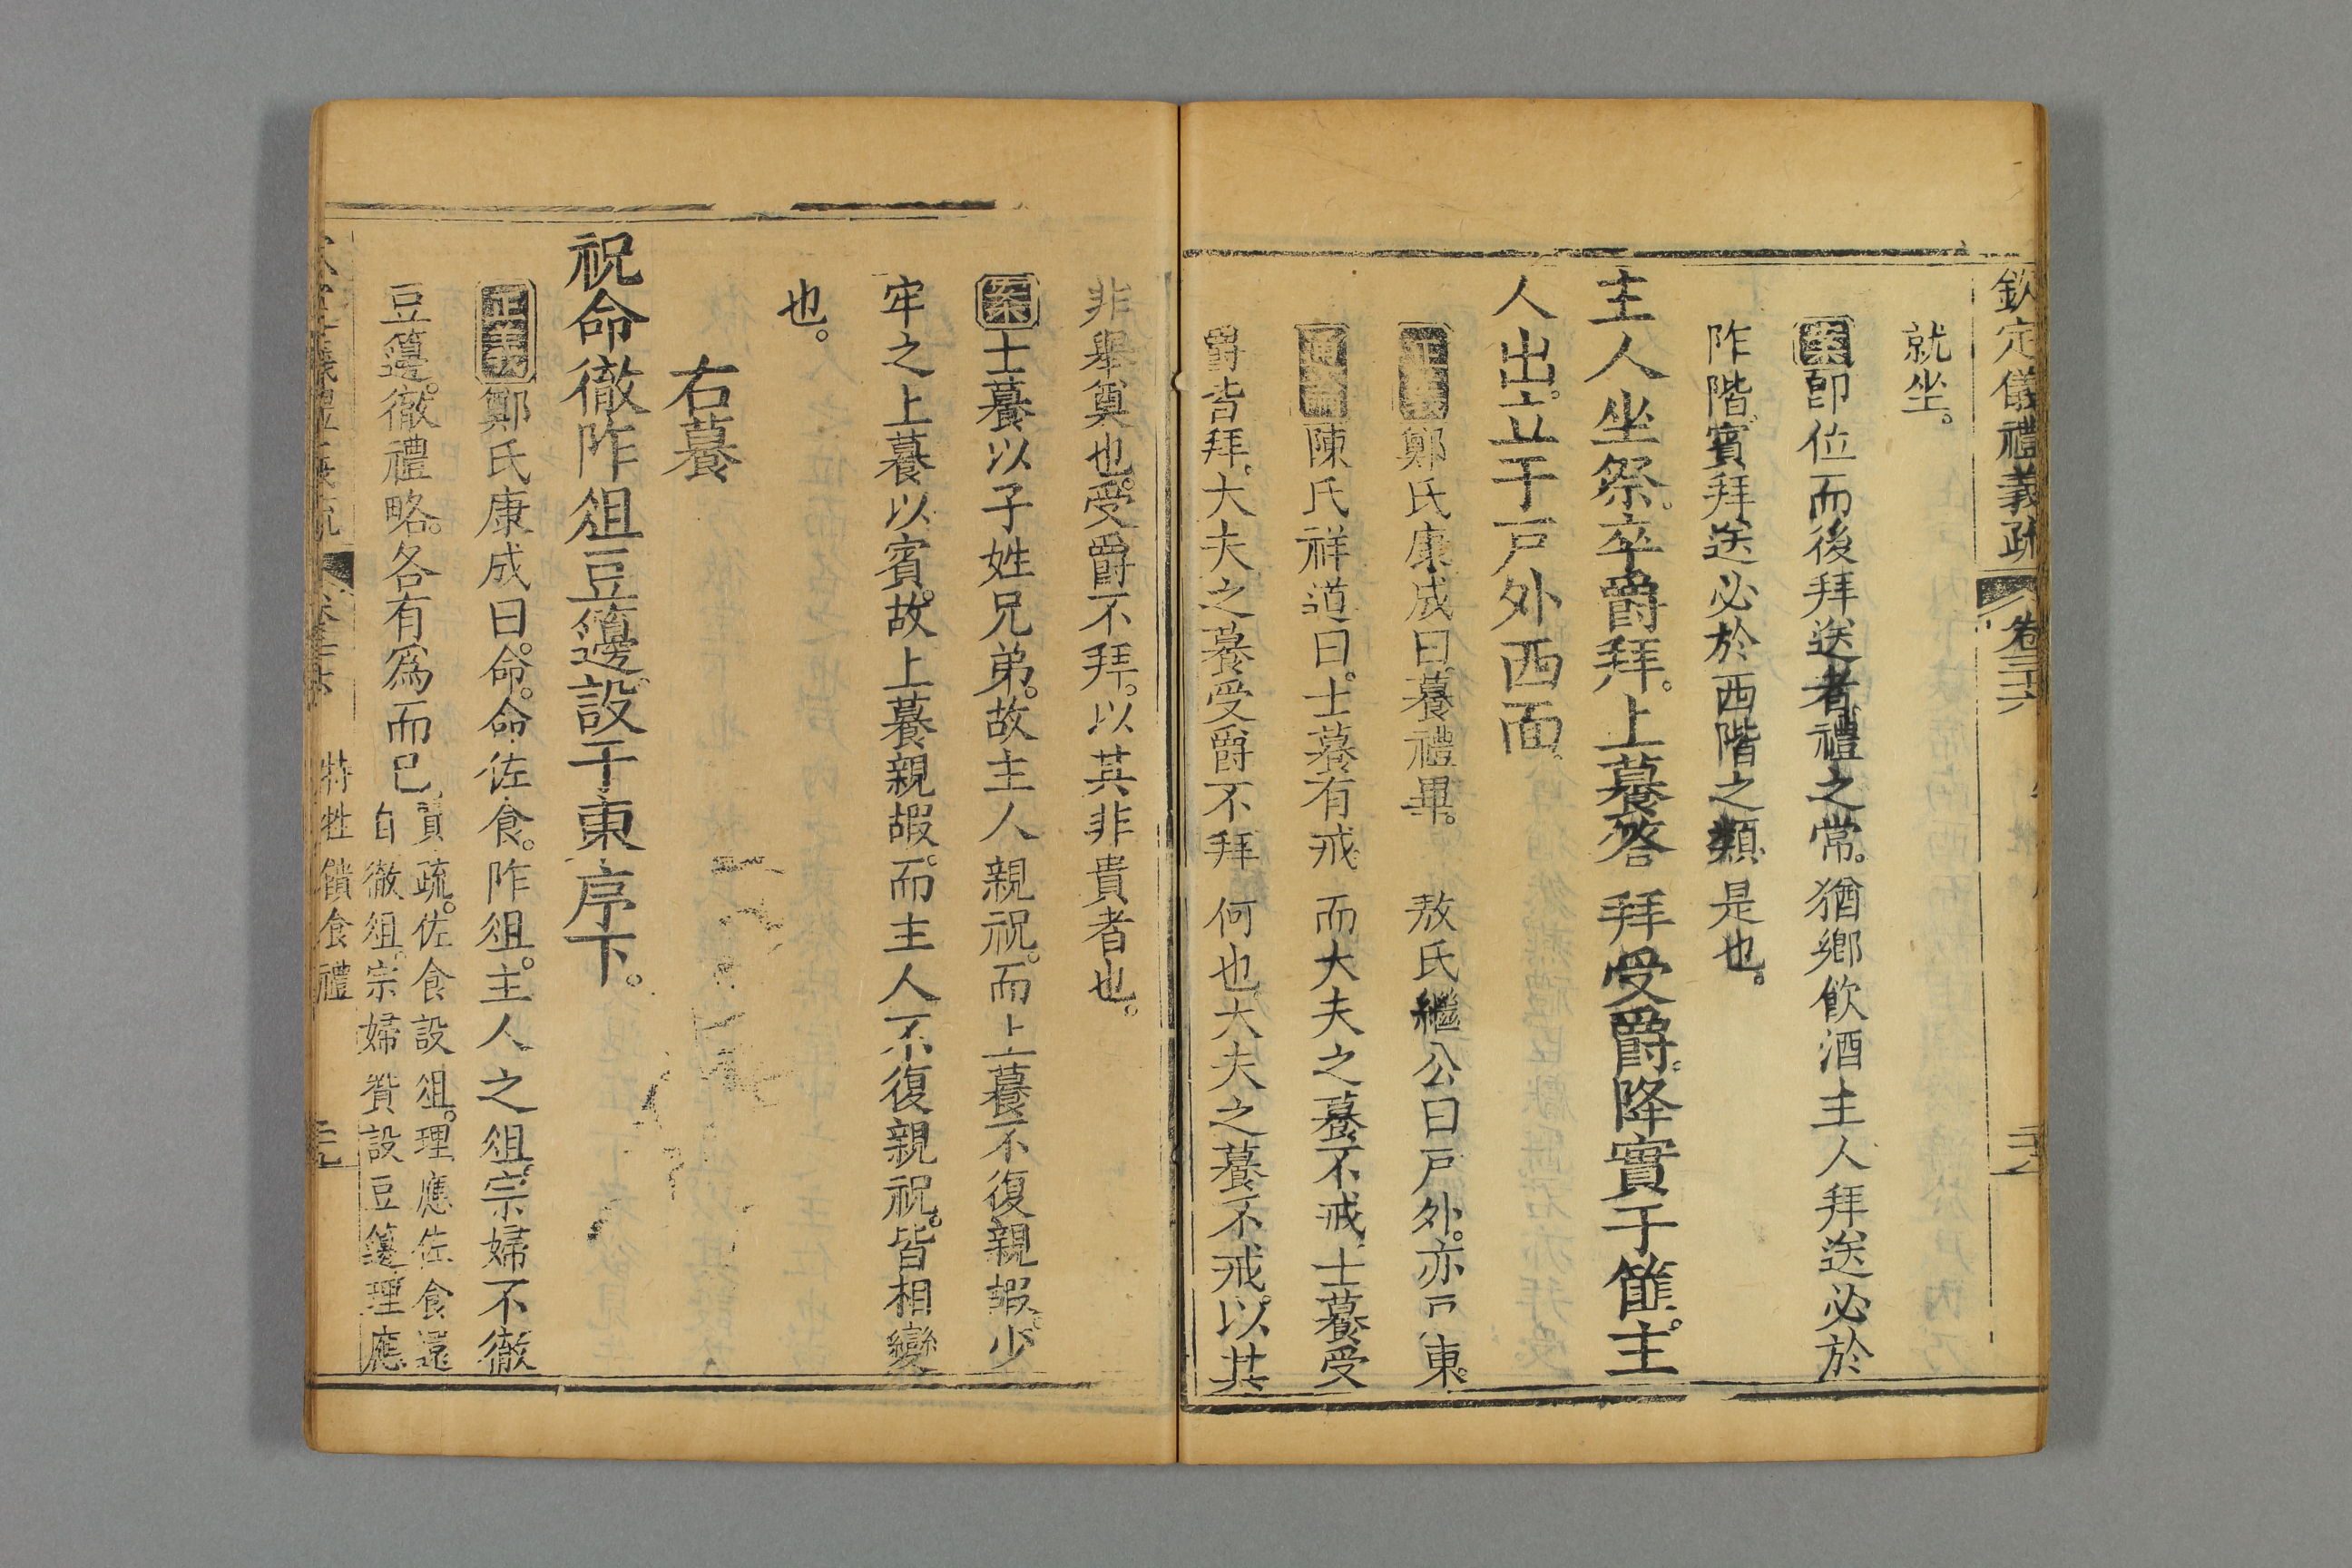 欽定儀禮義疏 卷三十六
就坐。
案即位而後拜送者禮之常。猶鄉飲酒主人拜送必於
阼階賓拜送必於西階之類是也。
主人坐祭。卒爵拜。上䭆答拜受爵。降實于篚。主
人出。立于戶外西面。
正義鄭氏康成曰。䭆禮畢。 敖氏繼公曰戶外。亦戶東。
通論陳氏祥道曰。士䭆有戒而大夫之䭆不戒。士䭆受
爵皆拜。大夫之䭆受爵不拜何也。大夫之䭆不戒。以其
非舉奠也。受爵不拜。以其非貴者也。
案士䭆以子姓兄弟。故主人親祝。而上䭆不復親嘏。少
牢之上䭆以賓。故上䭆親嘏。而主人不復親祝。皆相變
也。
右䭆
祝命徹阼俎豆籩。設于東序下。
正義鄭氏康成曰。命。命佐食。阼俎。主人之俎。宗婦不徹
豆籩。徹禮略。各有爲而已。
賈疏。佐食設俎。理應佐食還
自徹俎。宗婦贊設豆籩理應
特牲饋食禮